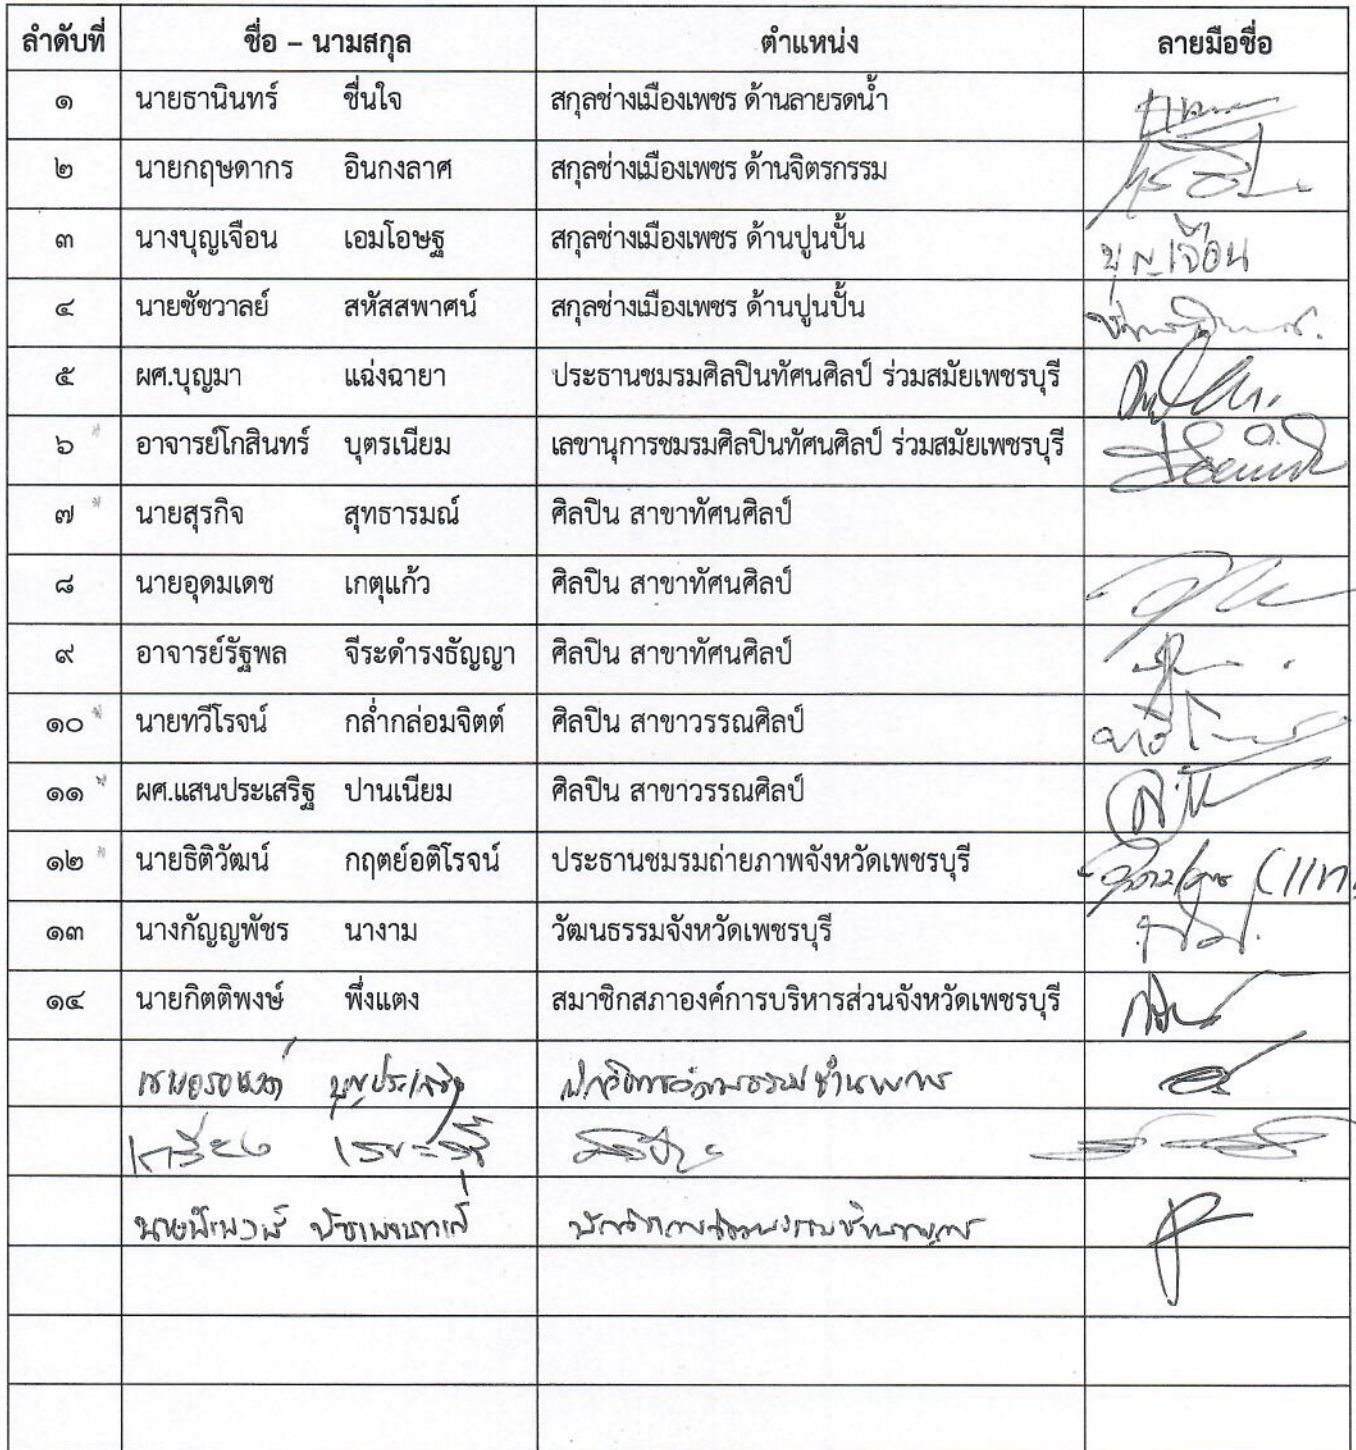 ลำดับที่ ชื่อ – นามสกุล ตำแหน่ง ลายมือชื่อ
๑ นายธานินทร์ ชื่นใจ สกุลช่างเมืองเพชร ด้านลายรดน้ำ
๒ นายกฤษดากร อินกงลาศ สกุลช่างเมืองเพชร ด้านจิตรกรรม
๓ นางบุญเจือน เอมโอษฐ สกุลช่างเมืองเพชร ด้านปูนปั้น บุญเจือน
๔ นายชัชวาลย์ สหัสสพาศน์ สกุลช่างเมืองเพชร ด้านปูนปั้น
๕ ผศ.บุญมา แฉ่งฉายา ประธานชมรมศิลปินทัศนศิลป์ ร่วมสมัยเพชรบุรี
๖ อาจารย์โกสินทร์ บุตรเนียม เลขานุการชมรมศิลปินทัศนศิลป์ ร่วมสมัยเพชรบุรี
๗ นายสุรกิจ สุทธารมณ์ ศิลปิน สาขาทัศนศิลป์
๘ นายอุดมเดช เกตุแก้ว ศิลปิน สาขาทัศนศิลป์
๙ อาจารย์รัฐพล จีระดำรงธัญญา ศิลปิน สาขาทัศนศิลป์
๑๐ นายทวีโรจน์ กล่ำกล่อมจิตต์ ศิลปิน สาขาวรรณศิลป์
๑๑ ผศ.แสนประเสริฐ ปานเนียม ศิลปิน สาขาวรรณศิลป์
๑๒ นายธิติวัฒน์ กฤตย์อติโรจน์ ประธานชมรมถ่ายภาพจังหวัดเพชรบุรี
๑๓ นางกัญญพัชร นางาม วัฒนธรรมจังหวัดเพชรบุรี
๑๔ นายกิตติพงษ์ พึ่งแตง สมาชิกสภาองค์การบริหารส่วนจังหวัดเพชรบุรี
บุญประเสริฐ นักวิชาการวัฒนธรรมชำนาญการ
นักวิชาการวัฒนธรรมชำนาญการ